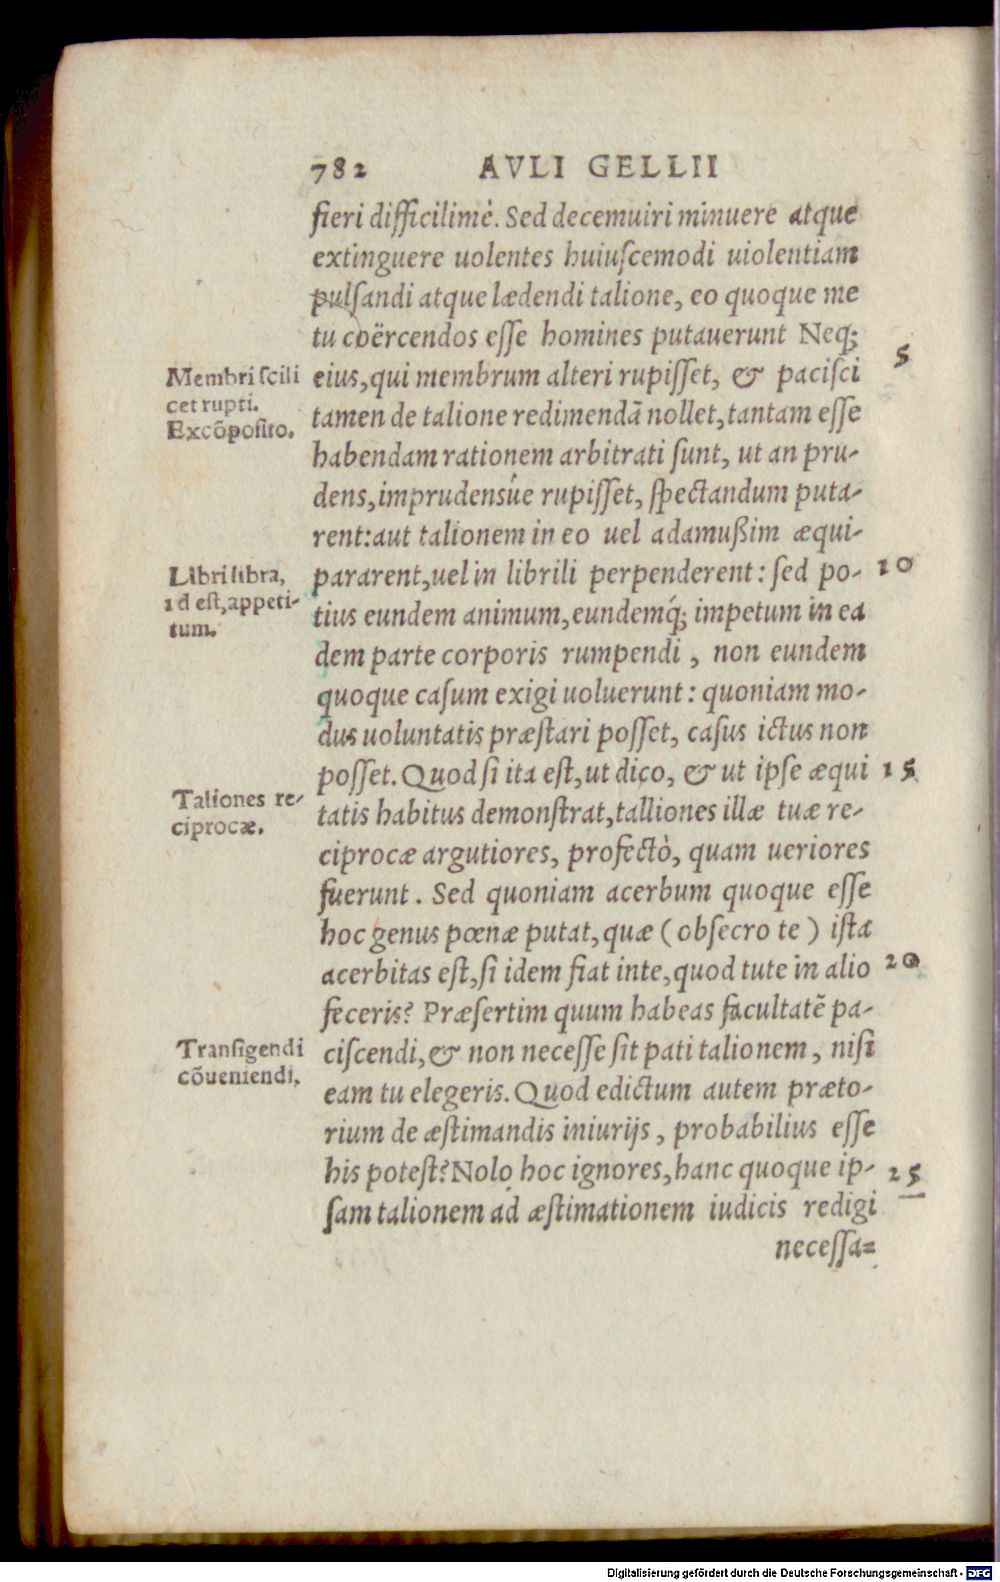 782 AVLI GELLII
fieri difficilimè. Sed decemuiri minuere atque
extinguere uolentes huiuſcemodi uiolentiam
pulſandi atque lædendi talione, eo quoque me
tu coërcendos eſſe homines putauerunt Neq;
5
Membri ſcili
cet rupti.
Excõpoſito.
eius, qui membrum alteri rupiſſet, & paciſci
tamen de talione redimendā nollet, tantam eſſe
habendam rationem arbitrati ſunt, ut an pru-
dens, imprudensûe rupiſſet, ſpectandum puta-
rent: aut talionem in eo uel adamußim æqui-
Libri libra,
id eſt, appeti-
tum.
pararent, uel in librili perpenderent: ſed po- 10
tius eundem animum, eundemq́; impetum in ea
dem parte corporis rumpendi, non eundem
quoque caſum exigi uoluerunt: quoniam mo-
dus uoluntatis præſtari poſſet, caſus ictus non
poſſet. Quod ſi ita eſt, ut dico, & ut ipſe æqui 15
Taliones re-
ciprocæ.
tatis habitus demonſtrat, talliones illæ tuæ re-
ciprocæ argutiores, profectò, quam ueriores
fuerunt. Sed quoniam acerbum quoque eſſe
hoc genus pœnæ putat, quæ (obſecro te) iſta
acerbitas eſt, ſi idem fiat inte, quod tute in alio 20
feceris? Præſertim quum habeas facultatẽ pa-
Tranſigendi
cõueniendi.
ciſcendi, & non neceſſe ſit pati talionem, niſi
eam tu elegeris. Quod edictum autem præto-
rium de æſtimandis iniurijs, probabilius eſſe
his poteſt? Nolo hoc ignores, hanc quoque ip- 25
ſam talionem ad æſtimationem iudicis redigi
neceſſa=
Digitalisierung gefördert durch die Deutsche Forschungsgemeinschaft - DFG